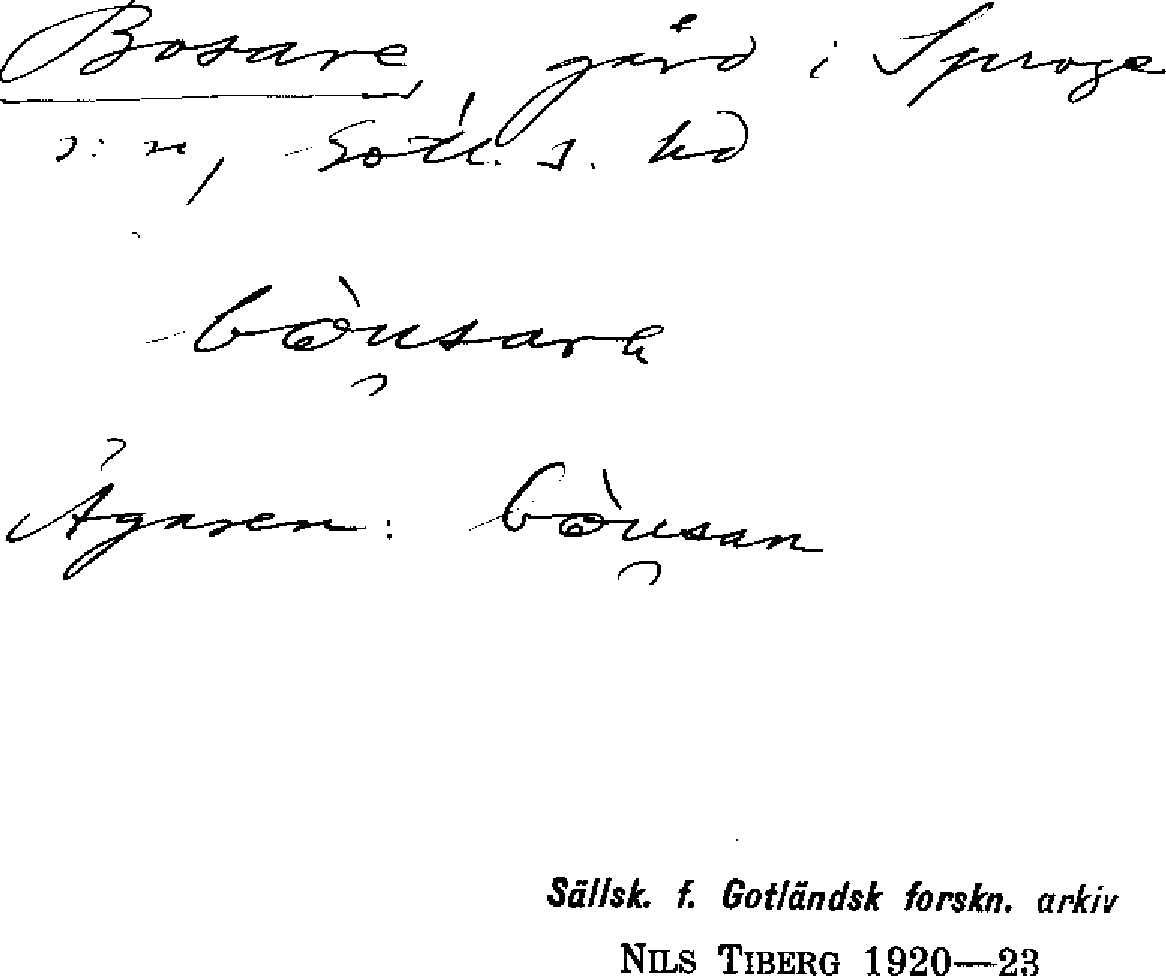 Bosare, gård i Sproge
s:n, Gotl. s. hd
bòu̯sarɐ
Ägaren: bòu̯san
Sällsk. f. Gotländsk forskn. arkiv
NILS TIBERG 1920—23